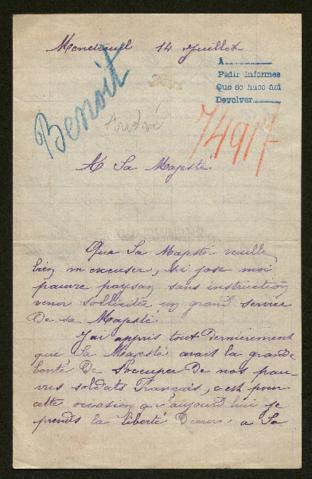 14 Juillet
A
Pedir informes
Que se hace así
Devolver
Benoit
André
74917
A Sa Majesté
Que Sa Majesté veuille
bien m'excuser, si j'ose moi
pauvre paysan sans instruction
venir solliciter un grand service
De sa Majesté.
J'ai appris tout Dernièrement
que Sa Majesté avait la grande
bonté De S'occuper De nos pau-
vres soldats Français, c'est pour
cette occasion qu'aujourd'hui je
prends la liberté D'écrire a Sa